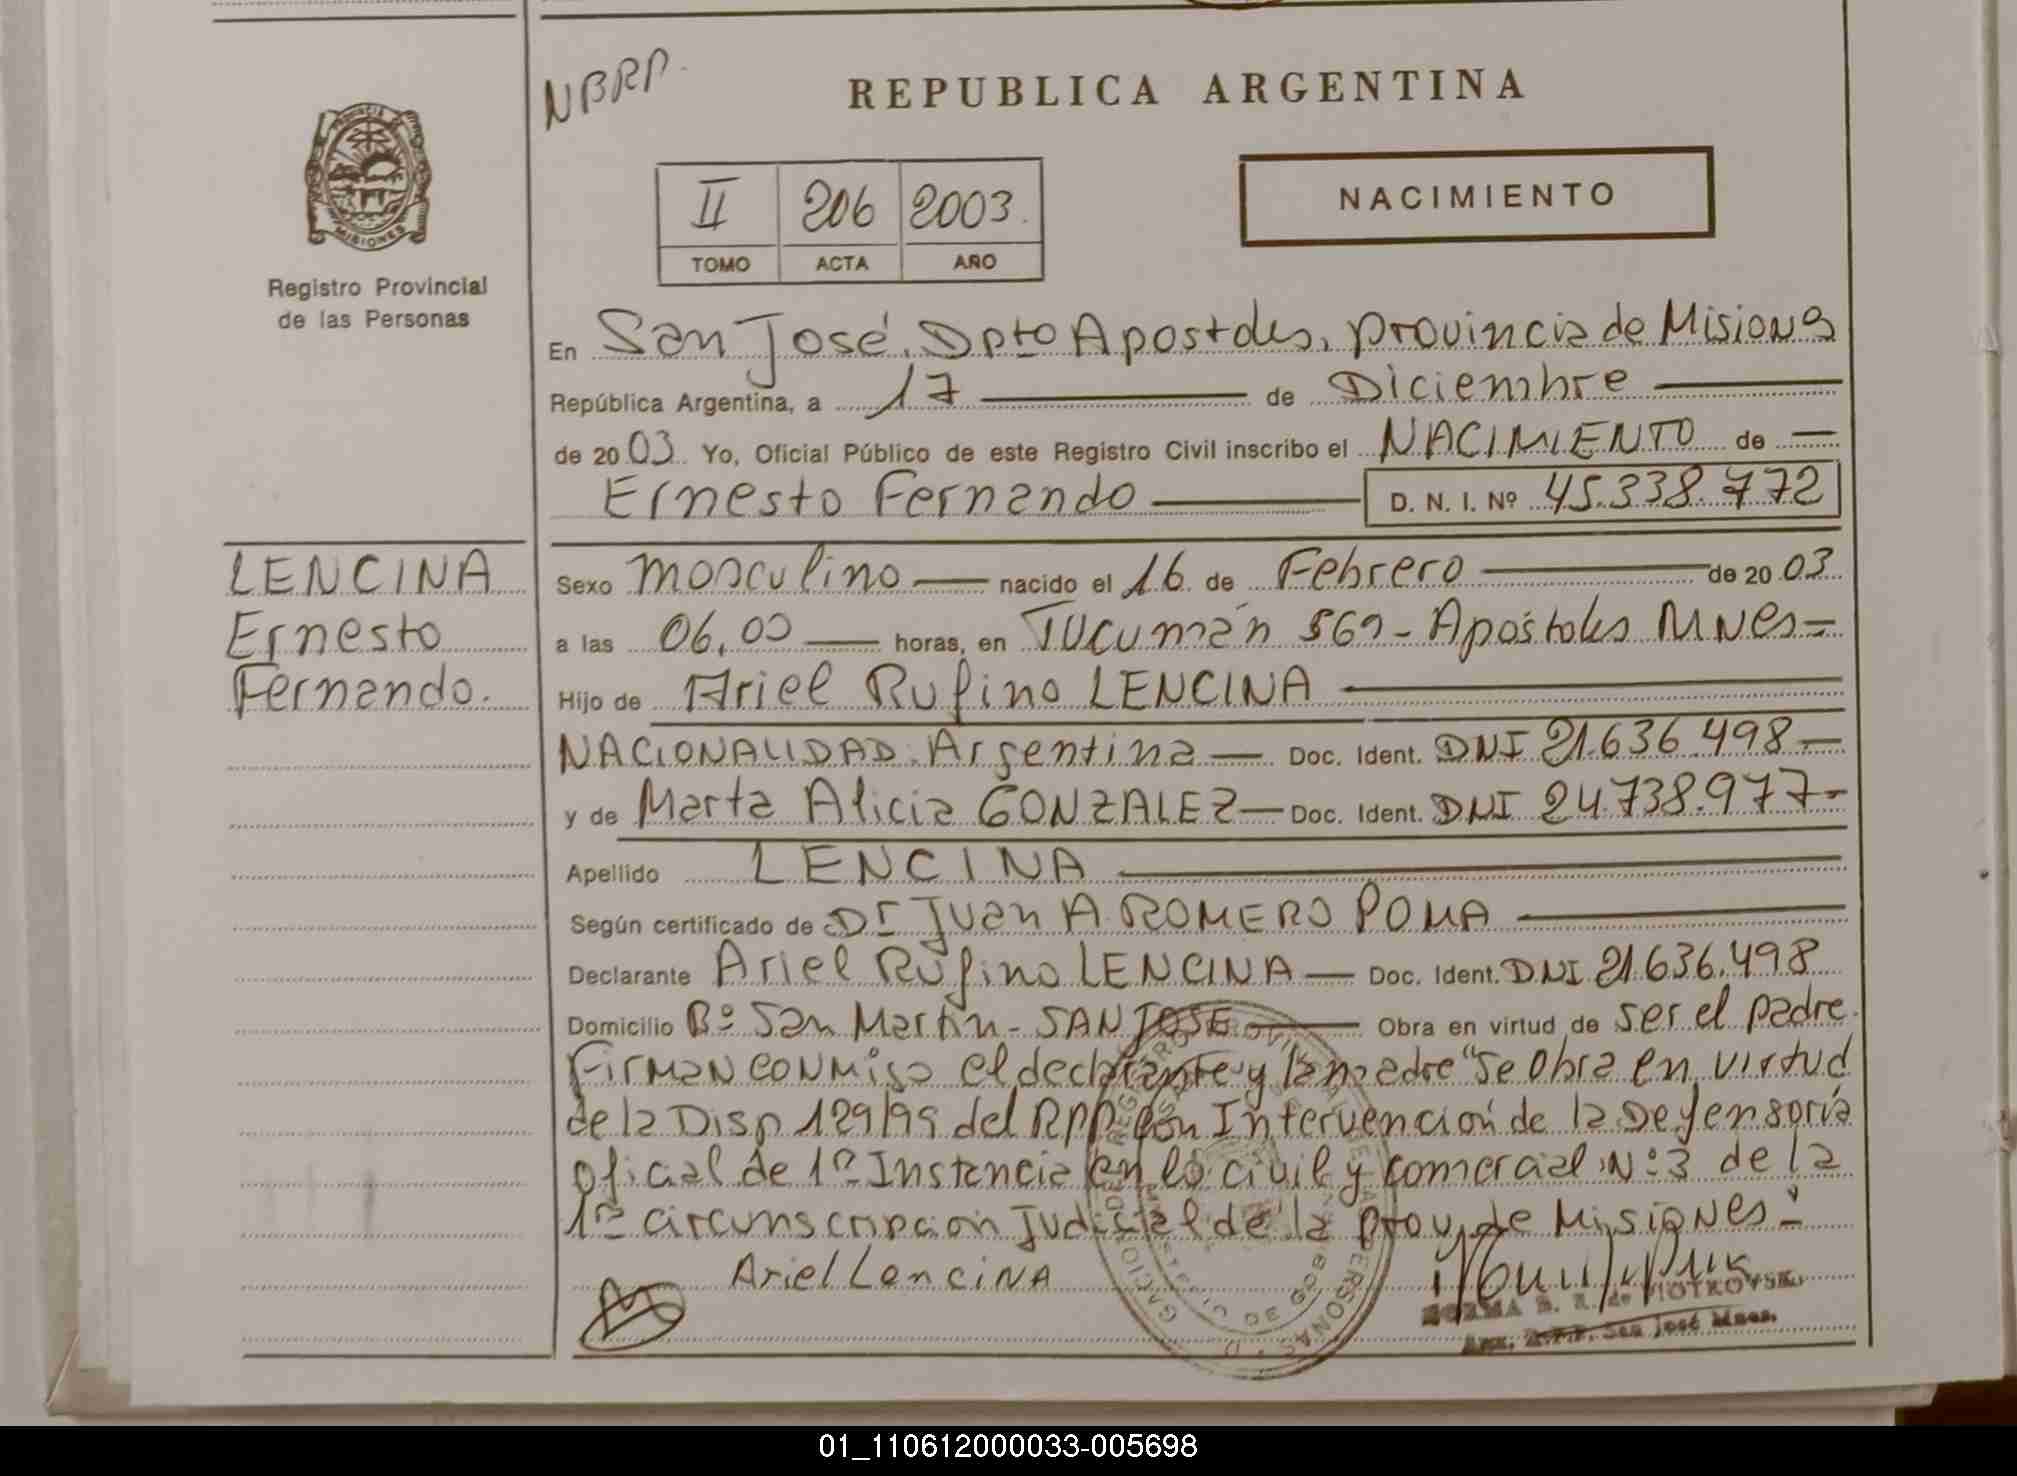 NBRP.
REPUBLICA ARGENTINA
PROVINCIA DE
MISIONES
Registro Provincial
de las Personas
II 206 2003.
TOMO ACTA AÑO
NACIMIENTO
En San José, Dpto Apostoles, provincia de Misiones
República Argentina, a 17 de Diciembre
de 2003 Yo, Oficial Público de este Registro Civil inscribo el NACIMIENTO de
Ernesto Fernando D. N. I. Nº 45.338.772
LENCINA
Ernesto
Fernando.
Sexo masculino nacido el 16 de Febrero de 2003
a las 06,00 horas, en Tucumán 569 - Apóstoles Mnes =
Hijo de Ariel Rufino LENCINA
NACIONALIDAD: Argentina Doc. Ident. DNI 21.636.498
y de Marta Alicia GONZALEZ Doc. Ident. DNI 24.738.977
Apellido LENCINA
Según certificado de Dr Juan A. ROMERO POMA
Declarante Ariel Rufino LENCINA Doc. Ident. DNI 21.636.498
Domicilio Bº San Martín - SAN JOSE Obra en virtud de ser el padre.
Firman conmigo el declarante y la madre "Se obra en virtud
de la Disp 129/99 del RPP con Intervención de la Defensoría
oficial de 1º Instancia en lo civil y comercial Nº 3 de la
1ra circunscripción Judicial de la prov. de Misiones"
Ariel Lencina
NORMA B. R. de PIOTROVSKI
R.P.P. San José Mnes.
01_110612000033-005698